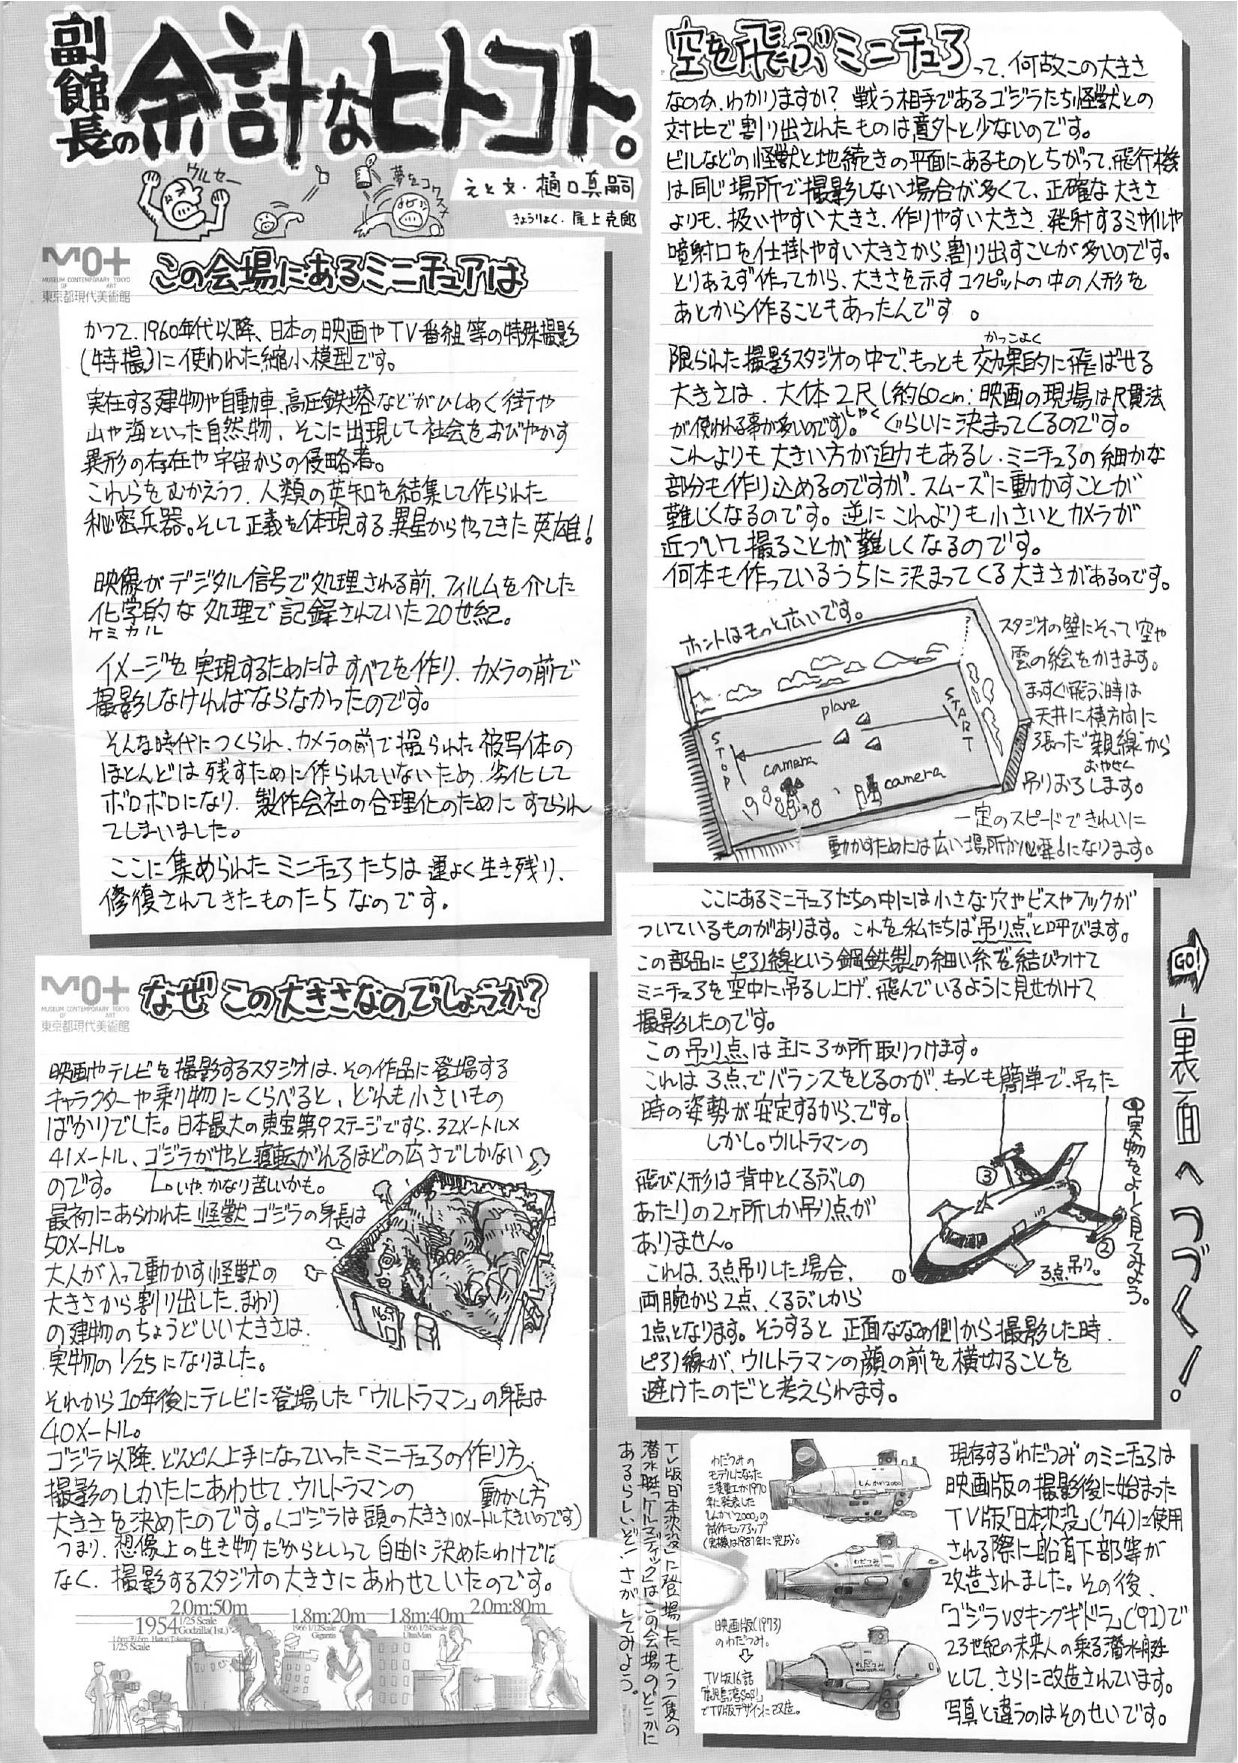 副館長の余計なヒトコト。
ウルセー
夢をコワスナ
えと文・樋口真嗣
きょうりょく・尾上克郎
MOT
MUSEUM CONTEMPORARY TOKYO
OF ART
東京都現代美術館
この会場にあるミニチュアは
かつて、1960年代以降、日本の映画やTV番組等の特殊撮影
(特撮)に使われた縮小模型です。
実在する建物や自動車、高圧鉄塔などがひしめく街や
山や海といった自然物、そこに出現して社会をおびやかす
異形の存在や宇宙からの侵略者。
これらをむかえうつ、人類の英知を結集して作られた
秘密兵器。そして正義を体現する異星からやってきた英雄!
映像がデジタル信号で処理される前、フィルムを介した
化学的な処理で記録されていた20世紀。
ケミカル
イメージを実現するためにはすべてを作り、カメラの前で
撮影しなければならなかったのです。
そんな時代につくられ、カメラの前で撮られた被写体の
ほとんどは残すために作られていないため、劣化して
ボロボロになり、製作会社の合理化のためにすてられ
てしまいました。
ここに集められたミニチュアたちは運よく生き残り、
修復されてきたものたちなのです。
MOT
MUSEUM CONTEMPORARY TOKYO
OF ART
東京都現代美術館
なぜこの大きさなのでしょうか?
映画やテレビを撮影するスタジオは、その作品に登場する
キャラクターや乗り物にくらべると、どれも小さいもの
ばかりでした。日本最大の東宝第9ステージですら、32メートル×
41メートル、ゴジラがやっと寝転がれるほどの広さでしかない
のです。
いや、かなり苦しいかも。
最初にあらわれた怪獣ゴジラの身長は
50メートル。
大人が入って動かす怪獣の
大きさから割り出した、まわり
の建物のちょうどいい大きさは、
実物の1/25になりました。
それから10年後にテレビに登場した「ウルトラマン」の身長は
40メートル。
ゴジラ以降、どんどん上手になっていったミニチュアの作り方、
撮影のしかたにあわせて、ウルトラマンの
動かし方
大きさを決めたのです。(ゴジラは頭の大きさ10メートル大きいのです)
つまり、想像上の生き物だからといって自由に決めたわけでは
なく、撮影するスタジオの大きさにあわせていたのです。
No.9
2.0m:50m
1954 1/25 Scale
Godzilla(1st.)
1/25 Scale
1.8m:20m
1966 1/12Scale
1.8m:40m
UltraMan
2.0m:80m
空を飛ぶミニチュアって、何故この大きさ
なのか、わかりますか? 戦う相手であるゴジラたち怪獣との
対比で割り出されたものは意外と少ないのです。
ビルなどの怪獣と地続きの平面にあるものとちがって、飛行機
は同じ場所で撮影しない場合が多くて、正確な大きさ
よりも、扱いやすい大きさ、作りやすい大きさ、発射するミサイルや
噴射口を仕掛やすい大きさから割り出すことが多いのです。
とりあえず作ってから、大きさを示すコクピットの中の人形を
あとから作ることもあったんです。
かっこよく
限られた撮影スタジオの中で、もっとも効果的に飛ばせる
大きさは、大体2尺(約60cm:映画の現場は尺貫法
しゃく
が使われる事が多いのです)。ぐらいに決まってくるのです。
これよりも大きい方が迫力もあるし、ミニチュアの細かな
部分も作り込めるのですが、スムーズに動かすことが
難しくなるのです。逆にこれよりも小さいとカメラが
近づいて撮ることが難しくなるのです。
何本も作っているうちに決まってくる大きさがあるのです。
ホントはもっと広いです。
plane
START
STOP
camara
camera
スタジオの壁にそって空や
雲の絵をかきます。
まっすぐ飛ぶ時は
天井に横方向に
張った"親線"から
おやせん
吊りおろします。
一定のスピードできれいに
動かすためには広い場所が必要になります。
ここにあるミニチュアたちの中には小さな穴やビスやフックが
ついているものがあります。これを私たちは"吊り点"と呼びます。
この部品にピアノ線という鋼鉄製の細い糸を結びつけて
ミニチュアを空中に吊るし上げ、飛んでいるように見せかけて
撮影したのです。
この吊り点は主に3か所取りつけます。
これは3点でバランスをとるのが、もっとも簡単で、吊った
時の姿勢が安定するから、です。
しかし。ウルトラマンの
飛び人形は背中とくるぶしの
あたりの2ヶ所しか吊り点が
ありません。
これは、3点吊りした場合、
両腕から2点、くるぶしから
1点となります。そうすると正面ななめ側から撮影した時、
ピアノ線が、ウルトラマンの顔の前を横切ることを
避けたのだと考えられます。
①
②
③
3点吊り。
実物をよーく見てみよう。
GO!
裏面へつづく!
TV版日本沈没に登場したもう一隻の
潜水艇ケルマディックはこの会場のどこかに
あるらしいぞ!さがしてみよう。
わだつみの
モデルになった
三菱重工が1970
年に発表した
しんかい2000の
試作モックアップ
(実機は1981年に完成。
しんかい2000
わだつみ
映画版(1973)
のわだつみ。
TV版16話
「鹿児島湾SOS!」
でTV版デザインに改造。
わだつみ
現存する"わだつみ"のミニチュアは
映画版の撮影後に始まった
TV版「日本沈没」('74)に使用
される際に船首下部等が
改造されました。その後、
「ゴジラVSキングギドラ」('91)で
23世紀の未来人の乗る潜水艇
として、さらに改造されています。
写真と違うのはそのせいです。